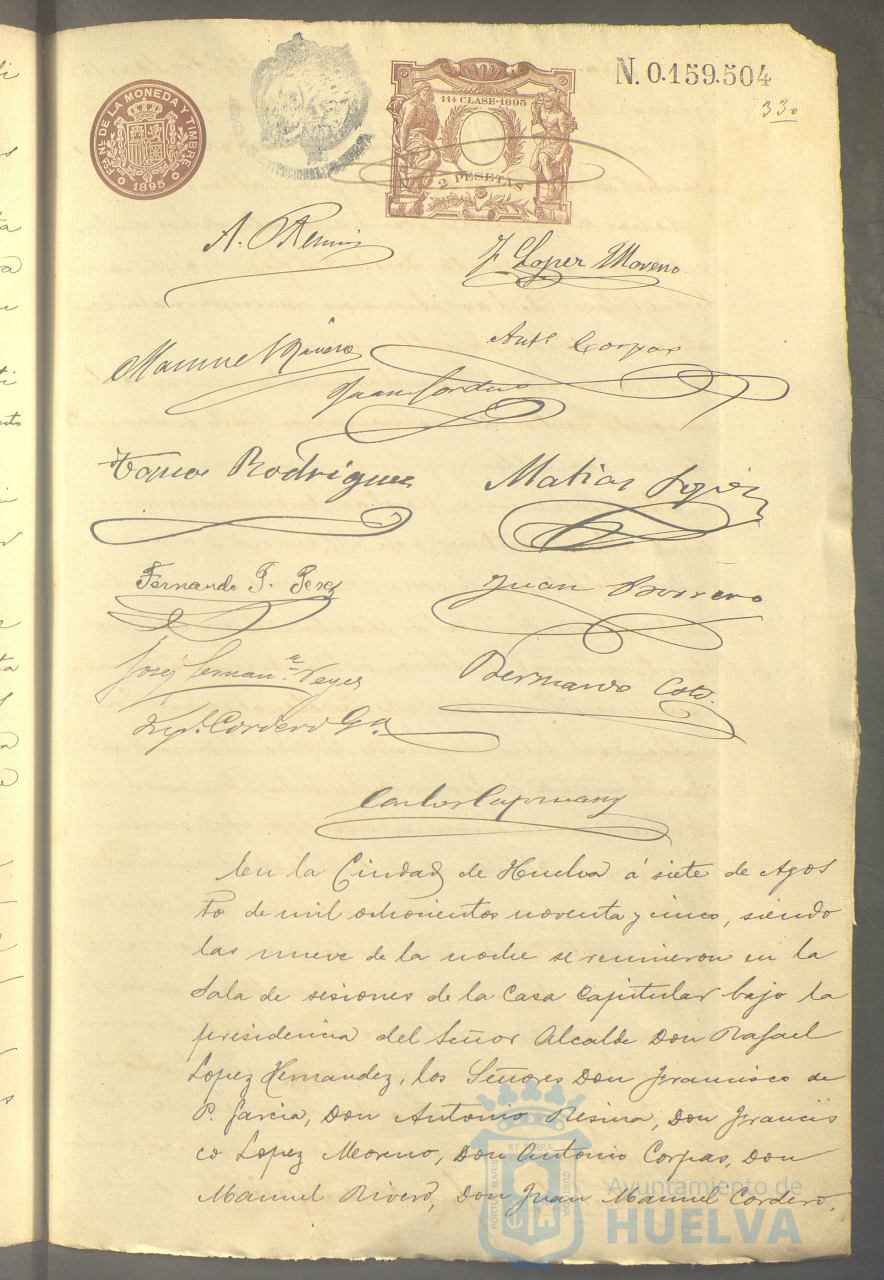 FCA NL DE LA MONEDA Y TIMBRE
1895
11ª CLASE·1895
2 PESETAS
N. 0.159.504
330
A. Resina
F Lopez Moreno
Manuel Rivero
Antº Corpas
Juan Cordero
Rodriguez
Matias Lopez
Fernando P. Perez
Juan Borrero
José Reyes
Bernardo Coto.
Cordero Gª
Carlos
En la Ciudad de Huelva á siete de Agos
to de mil ochocientos noventa y cinco, siendo
las nueve de la noche se reunieron en la
Sala de sesiones de la Casa Capitular bajo la
presidencia del Señor Alcalde Don Rafael
Lopez Hernandez, los Señores Don Francisco de
P. Garcia, Don Antonio Resina, Don Francis
co Lopez Moreno, Don Antonio Corpas, Don
Manuel Rivero, Don Juan Manuel Cordero,
PORTUS MARIS ET TERRÆ CUSTODIA
Ayuntamiento de
HUELVA